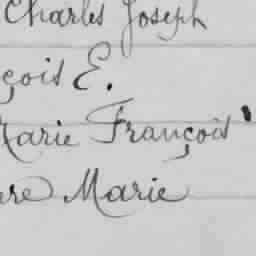 Charles Joseph
çois E.
Marie François
re Marie